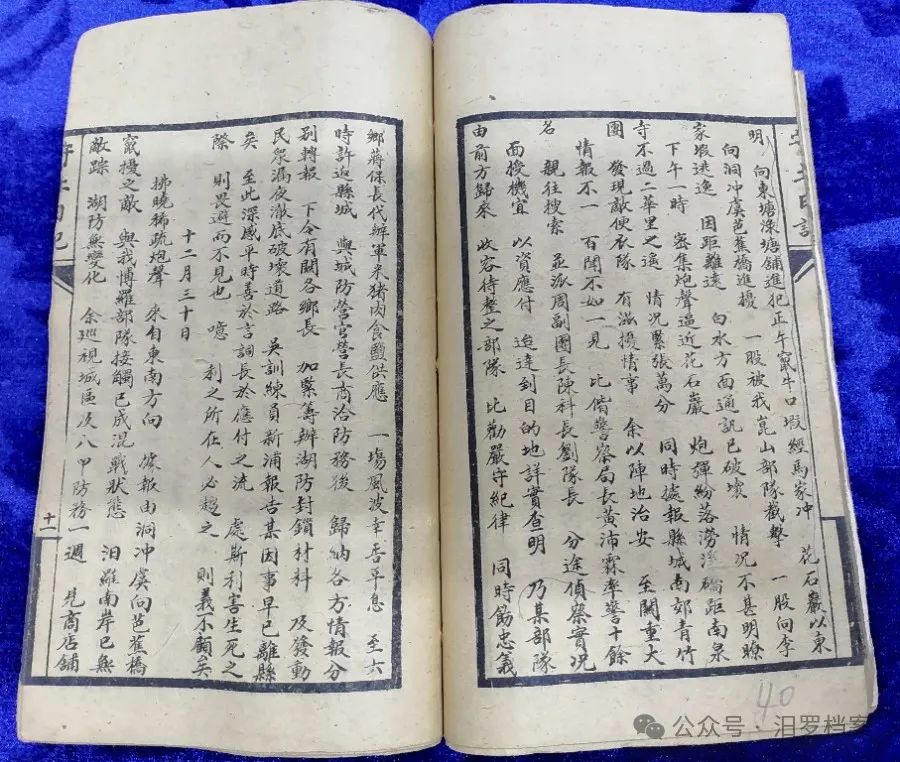 明　向東塘淥塘舖進犯正午竄牛口塅經馬家冲　花石巖以東
向洞冲虞芭蕉橋進擾　一股被我崑山部隊截擊　一股向李
家塅逃逸　因距離遠　白水方面通訊已破壞　情况不甚明瞭
下午一時　密集炮聲逼近花石巖　炮彈紛落澇溪礄距南泉
寺不過二華里之遙　情况緊張萬分　同時據報縣城南郊青竹
園　發現敵便衣隊　有滋擾情事　余以陣地治安　至關重大
情報不一　百聞不如一見　比偕警察局長黄沛霖率警十餘
名　親往搜索　並派周副團長陳科長劉隊長　分途偵察實况
面授機宜　以資應付　迨達到目的地詳實查明　乃某部隊
由前方歸來　收容待整之部隊　比勸嚴守紀律　同時飭忠義
鄉蔣保長代辦軍米猪肉食鹽供應　一場風波幸告早息　至六
時許返縣城　與城防營官營長商洽防務後　歸納各方情報分
别轉報　下令有關各鄉長　加緊籌辦湖防封鎖材料　及發動
民衆漏夜澈底破壞道路　吳訓練員新浦報告某因事早已離縣
矣　至此深感平時善於言詞長於應付之流　處斯利害生死之
際　則畏避而不見也　噫　利之所在人必趨之　則義不顧矣
十二月三十日
拂曉稀疏炮聲　來自東南方向　據報由洞冲虞向芭蕉橋
竄擾之敵　與我博羅部隊接觸已成混戰狀態　汨羅南岸已無
敵踪　湖防無變化　余巡視城區及八甲防務一週　見商店舖
十一
40
公众号·汨罗档案